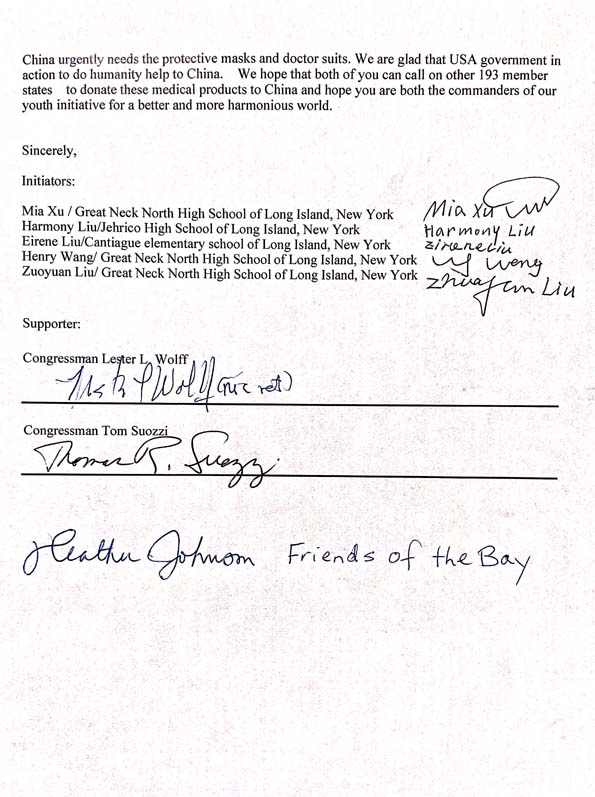 China urgently needs the protective masks and doctor suits. We are glad that USA government in
action to do humanity help to China. We hope that both of you can call on other 193 member
states to donate these medical products to China and hope you are both the commanders of our
youth initiative for a better and more harmonious world.
Sincerely,
Initiators:
Mia Xu / Great Neck North High School of Long Island, New York Mia Xu
Harmony Liu/Jehrico High School of Long Island, New York Harmony Liu
Eirene Liu/Cantiague elementary school of Long Island, New York
Henry Wang/ Great Neck North High School of Long Island, New York
Zuoyuan Liu/ Great Neck North High School of Long Island, New York Liu
Supporter:
Congressman Lester L. Wolff
Wolff
Congressman Tom Suozzi
Thomas R. Suozzi
Heather Johnson Friends of the Bay